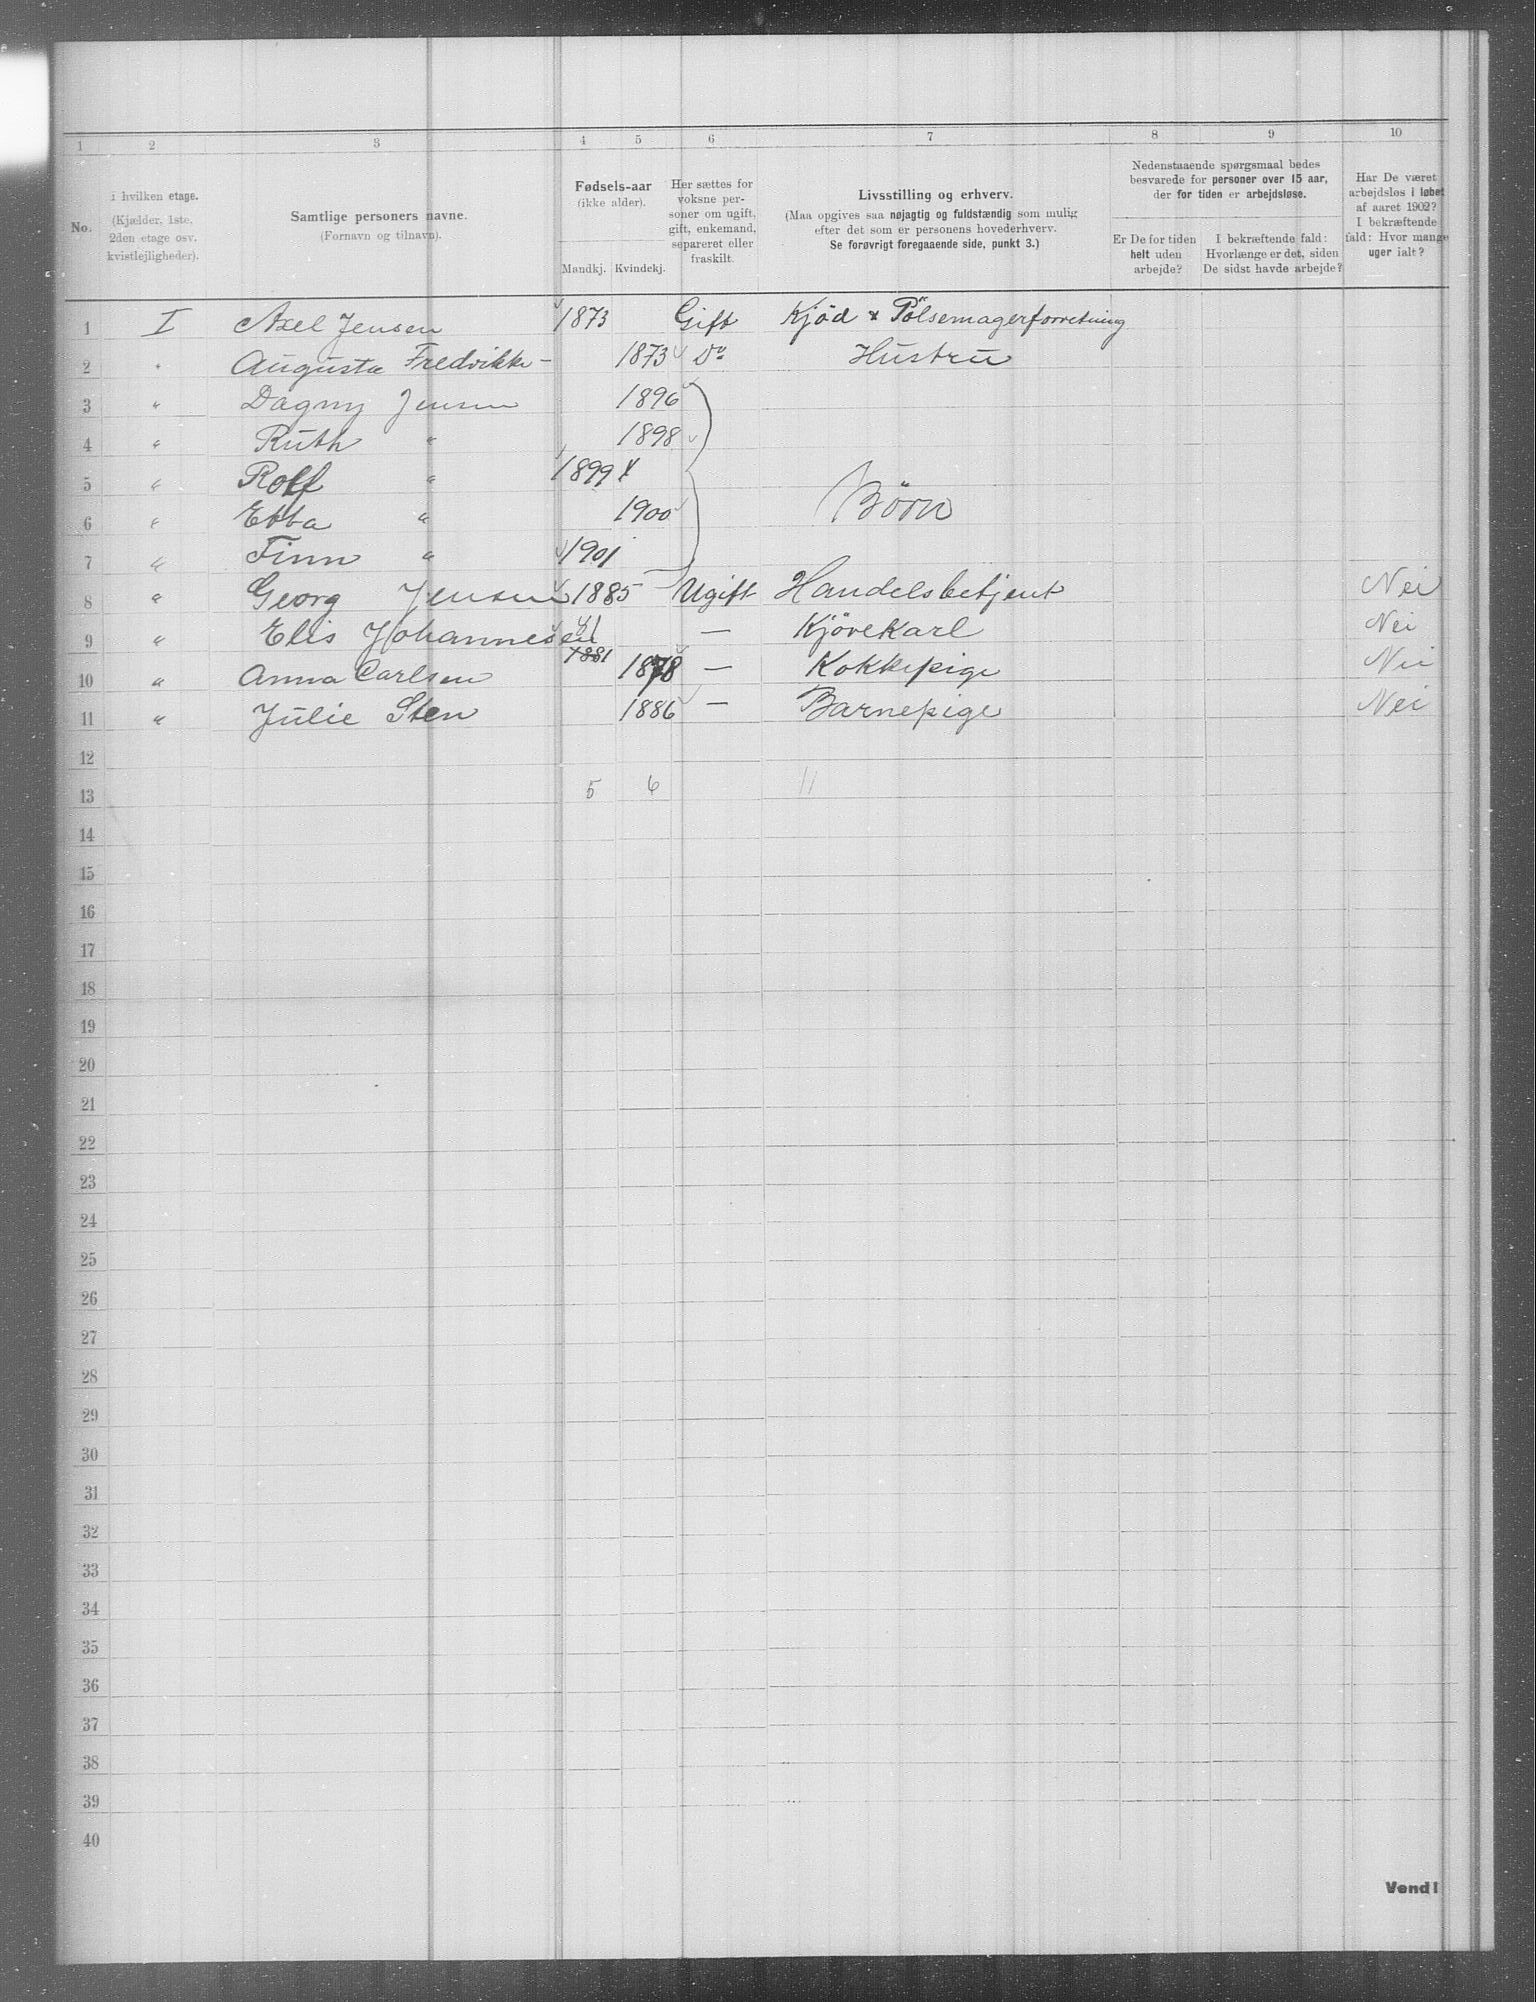 1 2 3 4 5 6 7 8 9 10
No.
i hvilken etage.
(Kjælder, 1ste,
2den etage osv.
kvistlejligheder).
Samtlige personers navne.
(Fornavn og tilnavn).
Fødsels-aar
(ikke alder).
Mandkj. Kvindekj.
Her sættes for
voksne per-
soner om ugift,
gift, enkemand,
separeret eller
fraskilt.
Livsstilling og erhverv.
(Maa opgives saa nøjagtig og fuldstændig som mulig
efter det som er personens hovederhverv.
Se forøvrigt foregaaende side, punkt 3.)
Nedenstaaende spørgsmaal bedes
besvarede for personer over 15 aar,
der for tiden er arbejdsløse.
Er De for tiden
helt uden
arbejde?
I bekræftende fald:
Hvorlænge er det, siden
De sidst havde arbejde?
Har De været
arbejdsløs i løbet
af aaret 1902?
I bekræftende
fald: Hvor mange
uger ialt?
1 I Axel Jensen 1873 Gift Kjød & Pölsemagerforretning
2 " Augusta Fredrikke – 1873 Do Hustru
3 " Dagny Jensen 1896
4 " Ruth " 1898
5 " Rolf " 1899
6 " Ebba " 1900 Børn
7 " Finn " 1901
8 " Georg Jensen 1885 Ugift Handelsbetjent Nei
9 " Elis Johannesen 1881 — Kjørekarl Nei
10 " Anna Carlsen 1878 — Kokkepige Nei
11 " Julie Sten 1886 — Barnepige Nei
12
13 5 6 11
14
15
16
17
18
19
20
21
22
23
24
25
26
27
28
29
30
31
32
33
34
35
36
37
38
39
40
Vend!